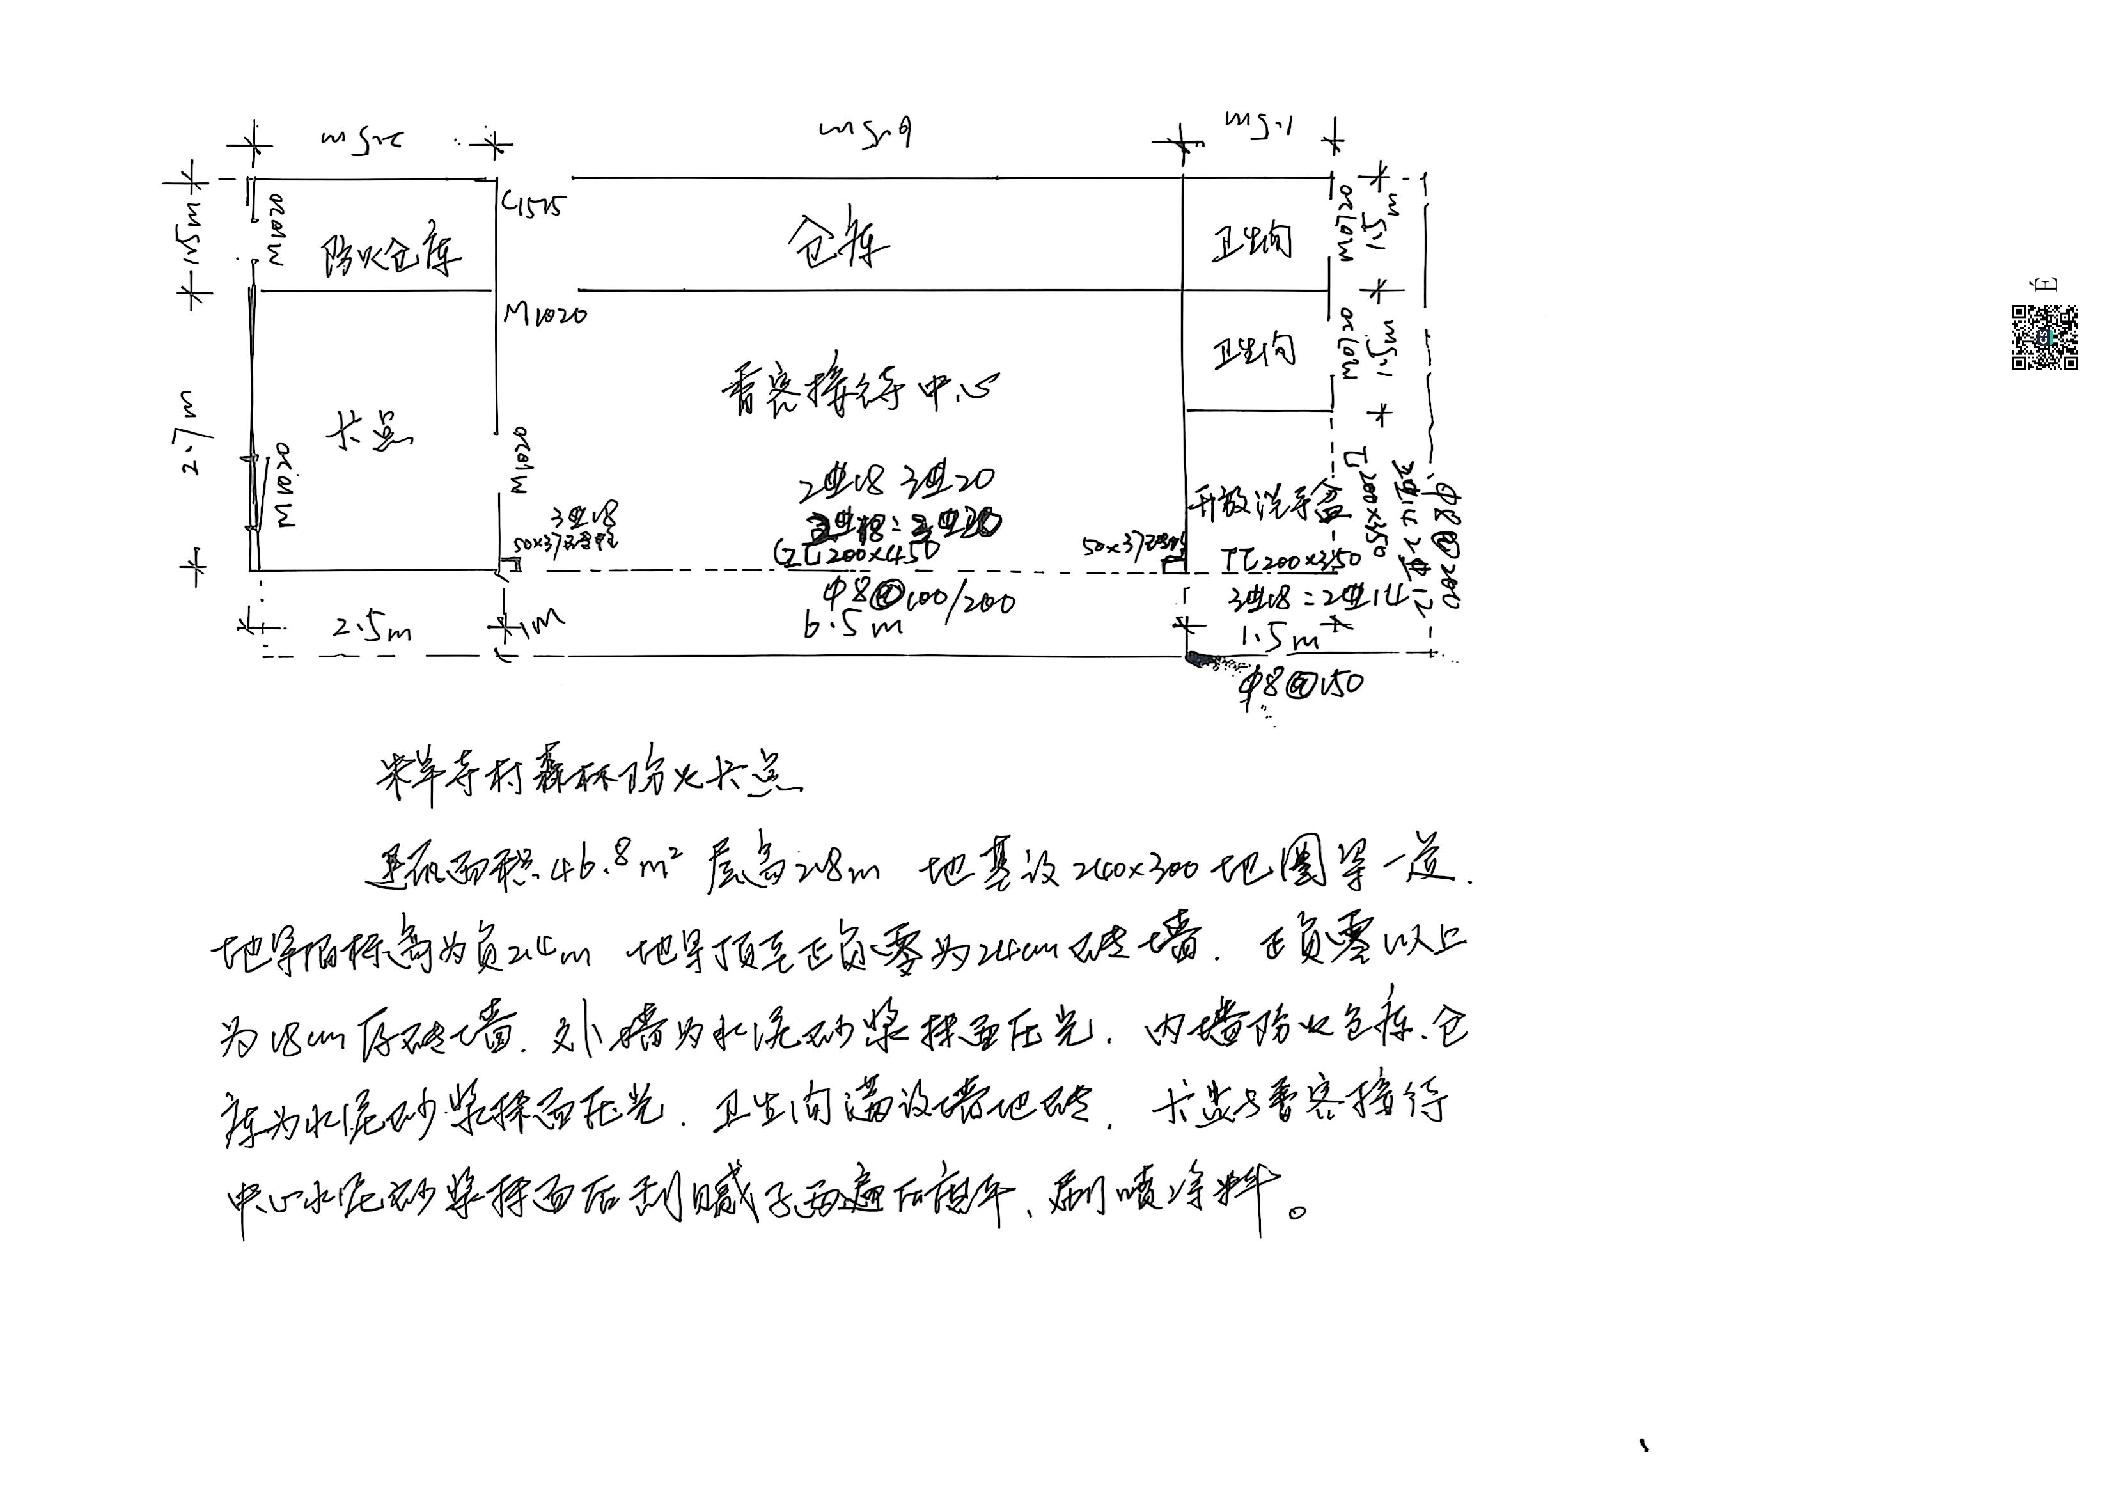 2.5m 6.5m 1.5m
1.5m M1020 C1515 M0720 1.5m
防火仓库 仓库 卫生间
M1020 M0720 1.5m
卫生间
香客接待中心
2.7m 卡点 M1020 M1020
2⌀18 3⌀20
3⌀18 开放洗手盆 TL200x350 2⌀14 2⌀12 Φ8@200
50x37 50x37
GZL200x450 TL200x350
Φ8@100/200 3⌀18 = 2⌀14
2.5m 1M 6.5m 1.5m
Φ8@150
寺村森林防火卡点
建筑面积46.8m² 层高2.8m 地基设240x300地圈梁一道.
地梁顶标高为负2.4m 地梁顶至正负零为24cm砖墙. 正负零以上
为18cm厚砖墙. 外墙为水泥砂浆抹面压光. 内墙防火仓库、仓
库为水泥砂浆抹面压光. 卫生间满设墙地砖. 卡点与香客接待
中心水泥砂浆抹面后刮腻子两遍后磨平、刷喷涂料。